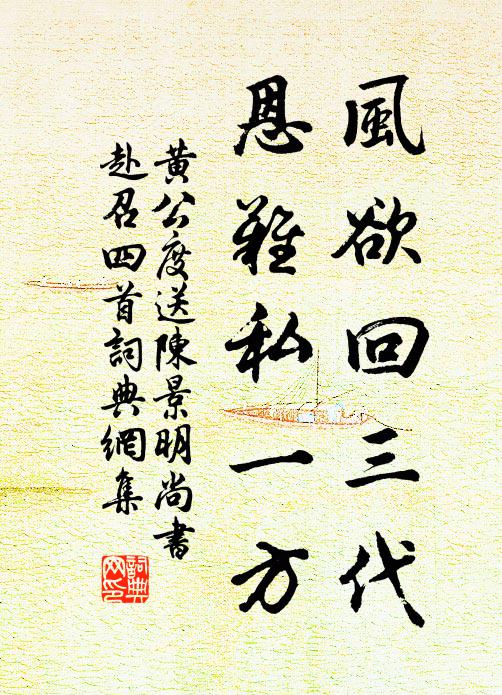 風欲回三代
恩難私一方
黃公度送陳景明尚書
赴召四首詞典網集
詞典
网印